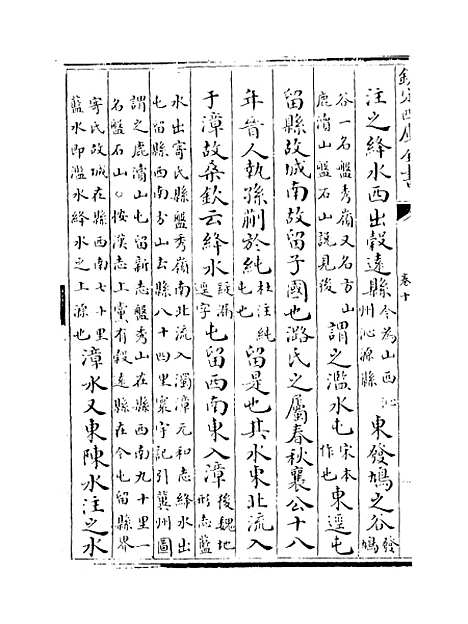 欽定四庫全書
卷十
注之絳水西出榖遠縣今為山西沁州沁源縣東發鳩之谷發鳩
谷一名盤秀嶺又名方山鹿瀆山盤石山說見後謂之濫水屯宋本作也東逕屯
留縣故城南故留子國也潞氏之屬春秋襄公十八
年晉人執孫蒯於純杜注純屯也留是也其水東北流入
于漳故桑欽云絳水設漏逕字屯留西南東入漳後魏地形志藍
水出寄氏縣盤秀嶺南北流入濁漳元和志絳水出屯留縣西南方山去縣八十四里寰宇記引冀州圖
謂之鹿瀆山屯留新志盤秀山在縣西南九十里一名盤石山○按漢志上黨有榖遠縣在今屯留縣界
寄氏故城在縣西南七十里藍水即濫水絳水之上源也漳水又東陳水注之水